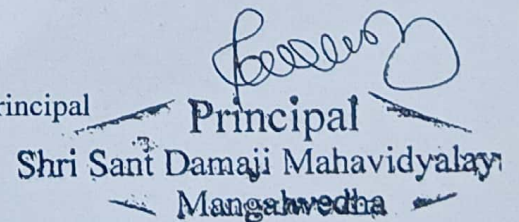 rincipal
Principal
Shri Sant Damaji Mahavidyalay
Mangalwedha